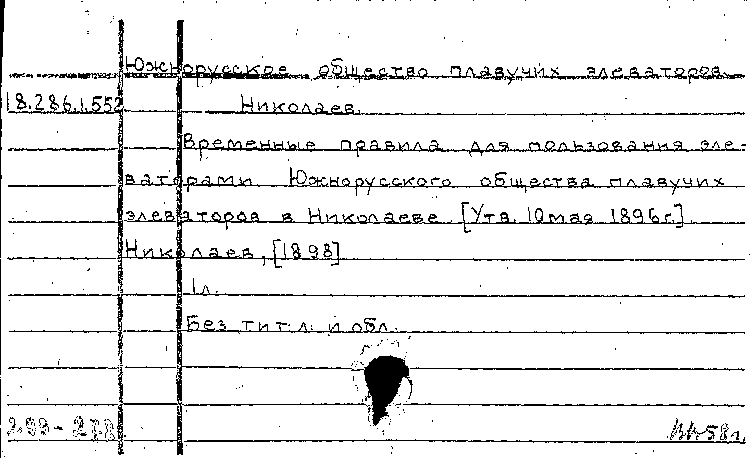 Южнорусское общество плавучих элеваторов.
18.286.1.552 Николаев.
Временные правила для пользования эле-
ваторами Южнорусского общества плавучих
элеваторов в Николаеве [Утв. 10 мая 1896 г.]
Николаев, [1898]
1 л.
Без тит. л. и обл.